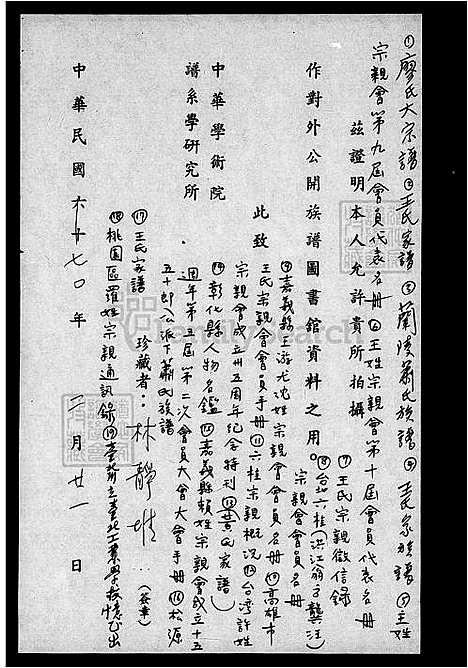 ①廖氏大宗譜②王氏家譜③蘭陵蕭氏族譜④王氏家族譜⑤王姓
宗親會第九屆會員代表名冊⑥王姓宗親會第十屆會員代表名冊
茲證明本人允許貴所拍攝
⑦王氏宗親徵信錄
⑧台北六桂(洪江翁方龔汪)
宗親會會員名冊
作對外公開族譜圖書館資料之用。
⑨嘉義縣王游尤沈姓宗親會會員名冊⑩高雄市
王氏宗親會會員手冊⑪六桂宗親概況⑫台灣許姓
宗親會成立卅五周年紀念特刊⑬黃氏家譜
此致
中華學術院
⑭彰化縣人物名鑑⑮嘉義縣賴姓宗親會成立十五
週年第五屆第二次會員大會大會手冊⑯松源
五十郎公派下蕭氏族譜
譜系學研究所
⑰王氏家譜
珍藏者:林靜 (簽章)
⑱桃園區羅姓宗親通訊錄⑲臺灣省立臺北工業學校憶出
中華民國 七〇年 二月 廿一日
FamilySearch